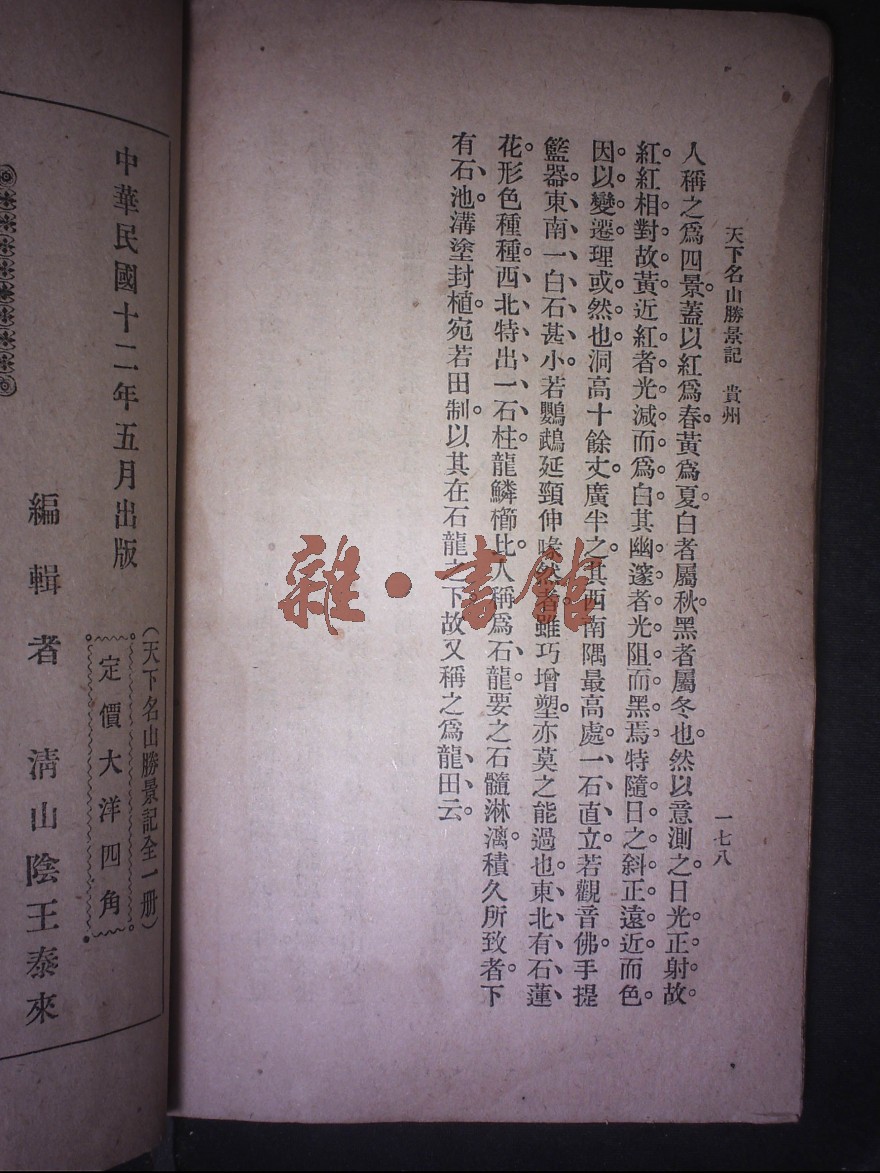 天下名山勝景記　貴州　一七八
人稱之爲四景。蓋以紅爲春。黃爲夏。白者屬秋。黑者屬冬也。然以意測之。日光正射。故
紅。紅相對。故黃。近紅者光減。而爲白。其幽邃者光阻。而黑焉。特隨日之斜正遠近而色
因。以變遷。理或然也。洞高十餘丈。廣半之。其西南隅最高處。一石直立。若觀音佛手提
籃器。東南一白石甚小。若鸚鵡延頸伸喙然者。雖巧增塑。亦莫之能過也。東北有石蓮
花。形色種種。西北特出一石柱。龍鱗櫛比。人稱爲石龍。要之石髓淋漓。積久所致者。下
有石池。溝塗封植。宛若田制。以其在石龍之下。故又稱之爲龍田云。
（天下名山勝景記全一册）
定價大洋四角
中華民國十二年五月出版
編輯者　清山陰王泰來
雜·書館